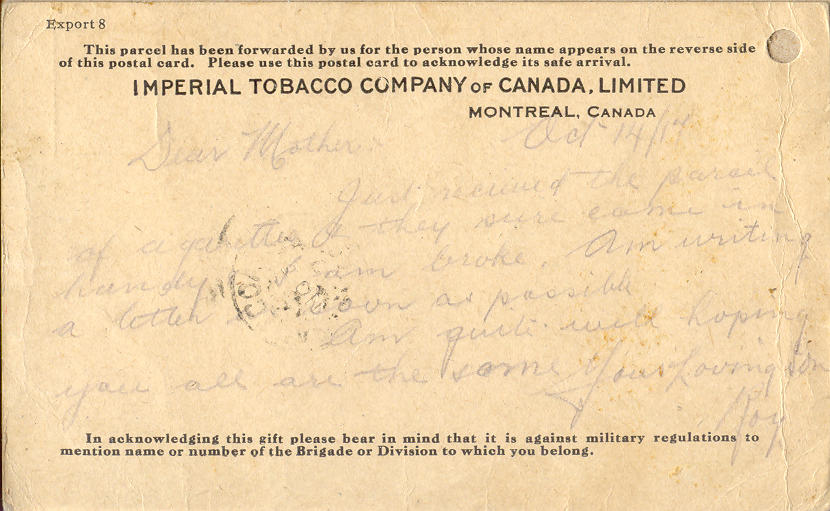 Export 8
This parcel has been forwarded by us for the person whose name appears on the reverse side
of this postal card. Please use this postal card to acknowledge its safe arrival.
IMPERIAL TOBACCO COMPANY OF CANADA, LIMITED
MONTREAL, CANADA
Oct 14/17
Dear Mother:
Just received the parcel
of cigarettes & they sure come in
handy I am broke. Am writing
a letter as soon as possible
Am quite well hoping
you all are the same Your Loving Son
Roy
In acknowledging this gift please bear in mind that it is against military regulations to
mention name or number of the Brigade or Division to which you belong.